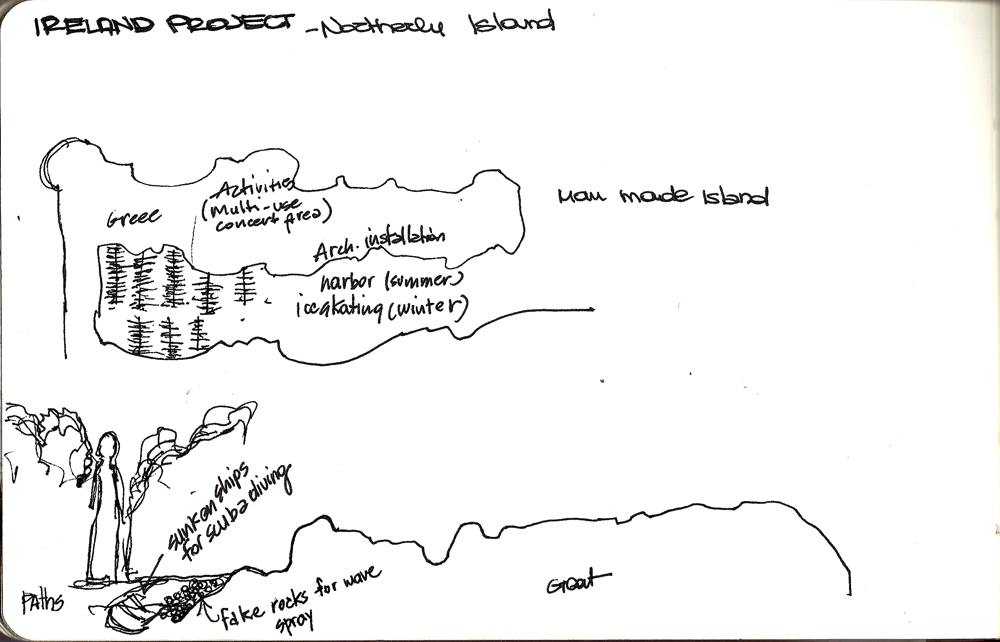 IRELAND PROJECT - Northerly Island
Activities
(multi-use
concert area)
Greec
Man made Island
Arch. installation
harbor (summer)
iceskating (winter)
sunken ships
for scuba diving
Paths
fake rocks for wave
spray
Great